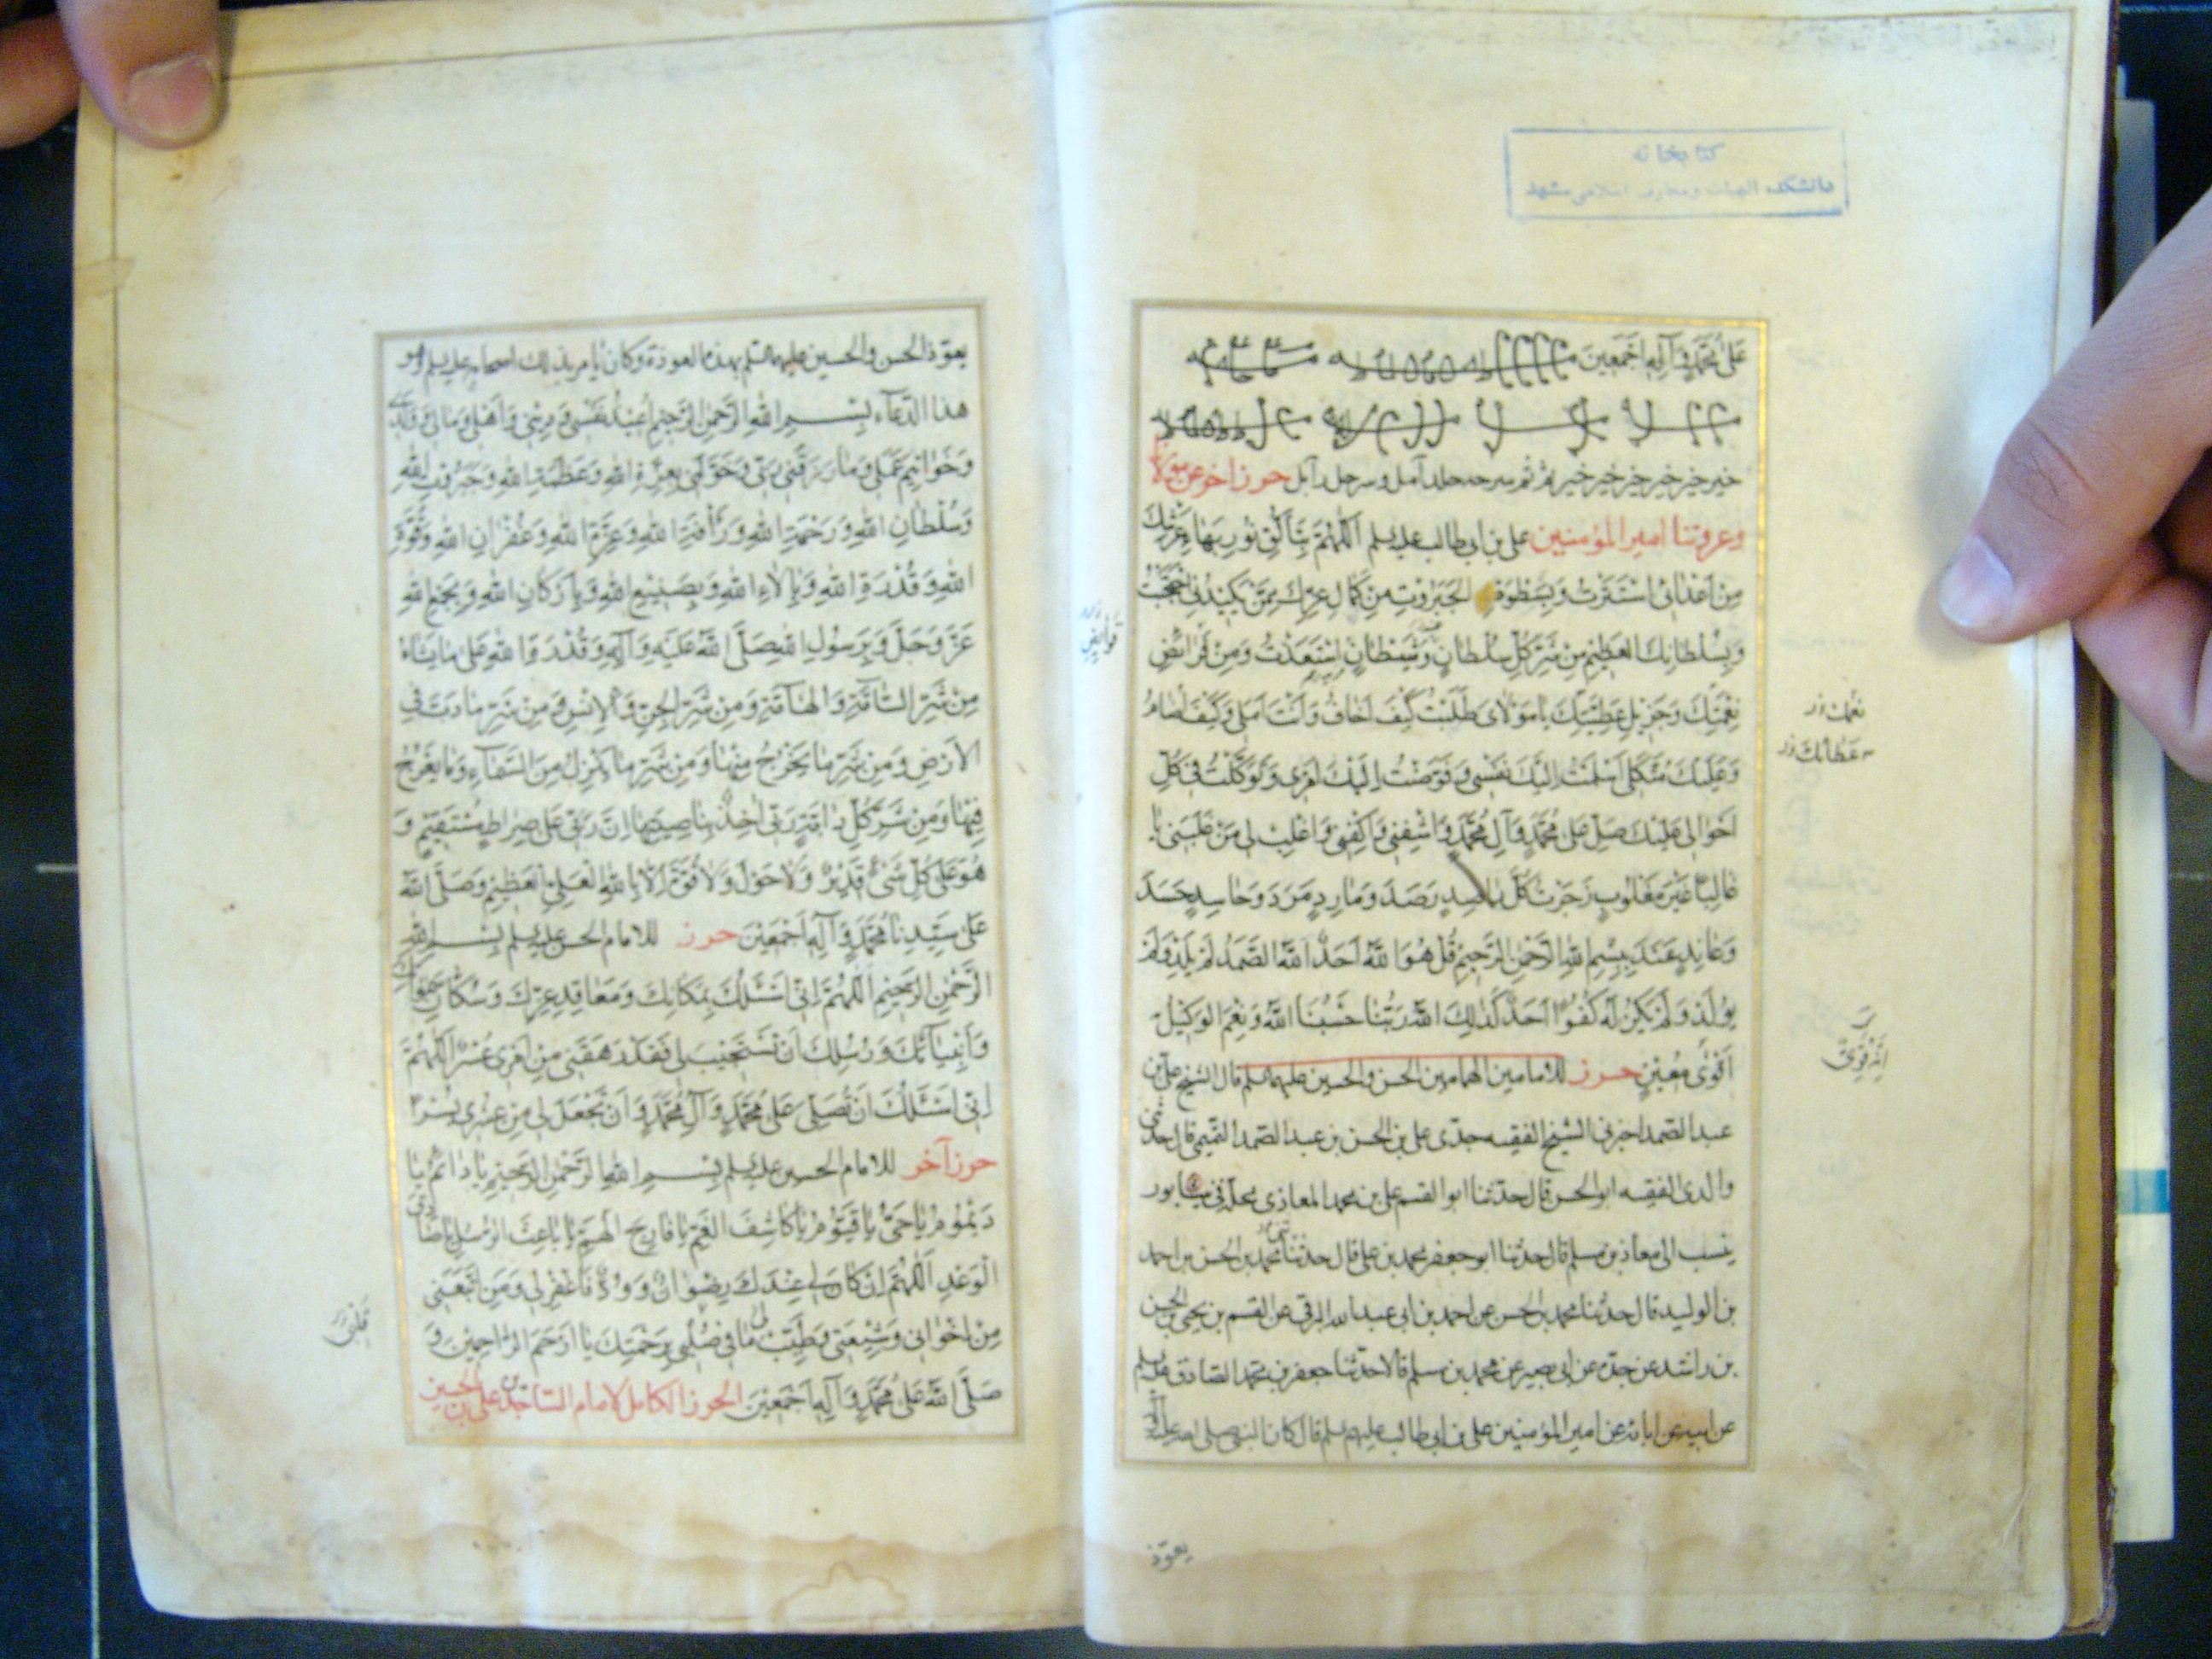 كتابخانه
دانشكده الهيات ومعارف اسلامى مشهد
عَلى مُحَمَّدٍ وَآلِهِ اَجْمَعينَ
خير خير خير خير خير خير حرز اخر عن مولانا
وعروتنا امير المؤمنين على بن ابى طالب عليه السلم اَللّهُمَّ بِتَأَلُّقِ نُورِ بَهاءِ عَرْشِكَ
مِنْ اَعْدائى اسْتَتَرْتُ وَبِسَطْوَةِ الجَبَرُوتِ مِنْ كَمالِ عِزِّكَ مِمَّنْ يَكيدُنى احْتَجَبْتُ
وَبِسُلْطانِكَ العَظيمِ مِنْ شَرِّ كُلِّ سُلْطانٍ وَشَيْطانٍ اسْتَعَذْتُ وَمِنْ فَرائِضِ
نِعْمَتِكَ وَجَزيلِ عَطِيَّتِكَ يا مَوْلاىَ طَلَبْتُ كَيْفَ اَخافُ وَاَنْتَ اَمَلى وَكَيْفَ اُضامُ
وَعَلَيْكَ مُتَّكَلى اَسْلَمْتُ اِلَيْكَ نَفْسى وَفَوَّضْتُ اِلَيْكَ اَمْرى وَتَوَكَّلْتُ فى كُلِّ
اَحْوالى عَلَيْكَ صَلِّ عَلى مُحَمَّدٍ وَآلِ مُحَمَّدٍ وَاشْفِنى وَاكْفِنى وَاغْلِبْ لى مَنْ غَلَبَنى يا
غالِبًا غَيْرَ مَغْلُوبٍ زَجَرْتُ كُلَّ راصِدٍ رَصَدَ وَمارِدٍ مَرَدَ وَحاسِدٍ حَسَدَ
وَعانِدٍ عَنَدَ بِبِسْمِ اللهِ الرَّحْمنِ الرَّحيمِ قُلْ هُوَ اللهُ اَحَدٌ اللهُ الصَّمَدُ لَمْ يَلِدْ وَلَمْ
يُولَدْ وَلَمْ يَكُنْ لَهُ كُفُوًا اَحَدٌ كَذلِكَ اللهُ رَبُّنا حَسْبُنَا اللهُ وَنِعْمَ الوَكيلُ
اَقْوى مُعينٍ حرز للامامين الهمامين الحسن والحسين عليهما السلم قال الشيخ على بن
عبد الصمد اخبرنى الشيخ الفقيه جدى على بن الحسن بن عبد الصمد التميمى قال حدثنى
والدى الفقيه ابو الحسن قال حدثنا ابو القسم على بن محمد المعاذى بمحلة فى نيسابور
ينسب الى معاذ بن مسلم قال حدثنا ابو جعفر محمد بن على قال حدثنا محمد بن الحسن بن احمد
بن الوليد قال حدثنا محمد بن الحسن عن احمد بن ابى عبد الله البرقى عن القسم بن يحيى بن الحسن
بن راشد عن جده عن ابى بصير عن محمد بن مسلم قالا حدثنا جعفر بن محمد الصادق عليه السلم
عن ابيه عن ابائه عن امير المؤمنين على بن ابى طالب عليهم السلم قال كان النبى صلى الله عليه وآله
يعوّذ
نعمك
عطائك
اِنَّهُ قَوِىٌّ
يعوّذ الحسن والحسين عليهما السلم بهذه العوذة وكان يامر بذلك اصحابه عليه السلم وهو
هذا الدّعآء بِسْمِ اللهِ الرَّحْمنِ الرَّحيمِ اُعيذُ نَفْسى وَدينى وَاَهْلى وَمالى وَوَلَدى
وَخَواتيمَ عَمَلى وَما رَزَقَنى رَبّى وَخَوَّلَنى بِعِزَّةِ اللهِ وَعَظَمَةِ اللهِ وَجَبَرُوتِ اللهِ
وَسُلْطانِ اللهِ وَرَحْمَةِ اللهِ وَرَأْفَةِ اللهِ وَعِزَّةِ اللهِ وَغُفْرانِ اللهِ وَقُوَّةِ
اللهِ وَقُدْرَةِ اللهِ وَبِآلاءِ اللهِ وَبِصَنيعِ اللهِ وَبِاَرْكانِ اللهِ وَبِجَمْعِ اللهِ
عَزَّ وَجَلَّ وَبِرَسُولِ اللهِ صَلَّى اللهُ عَلَيْهِ وَآلِهِ وَقُدْرَةِ اللهِ عَلى ما يَشاءُ
مِنْ شَرِّ السّامَّةِ وَالهامَّةِ وَمِنْ شَرِّ الجِنِّ وَالاِنْسِ وَمِنْ شَرِّ ما دَبَّ فى
الاَرْضِ وَمِنْ شَرِّ ما يَخْرُجُ مِنْها وَمِنْ شَرِّ ما يَنْزِلُ مِنَ السَّمآءِ وَما يَعْرُجُ
فيها وَمِنْ شَرِّ كُلِّ دابَّةٍ رَبّى اخِذٌ بِناصِيَتِها اِنَّ رَبّى عَلى صِراطٍ مُسْتَقيمٍ وَ
هُوَ عَلى كُلِّ شَىْءٍ قَديرٌ وَلا حَوْلَ وَلا قُوَّةَ اِلاّ بِاللهِ العَلِىِّ العَظيمِ وَصَلَّى اللهُ
عَلى سَيِّدِنا مُحَمَّدٍ وَآلِهِ اَجْمَعينَ حرز للامام الحسن عليه السلم بِسْمِ اللهِ
الرَّحْمنِ الرَّحيمِ اَللّهُمَّ اِنّى اَسْئَلُكَ بِمَكانِكَ وَمَعاقِدِ عِزِّكَ وَسُكّانِ سَمواتِكَ
وَاَنْبِيآئِكَ وَرُسُلِكَ اَنْ تَسْتَجيبَ لى فَقَدْ رَهَقَنى مِنْ اَمْرى عُسْرٌ اَللّهُمَّ
اِنّى اَسْئَلُكَ اَنْ تُصَلِّىَ عَلى مُحَمَّدٍ وَآلِ مُحَمَّدٍ وَاَنْ تَجْعَلَ لى مِنْ عُسْرى يُسْرًا
حرز آخر للامام الحسين عليه السلم بِسْمِ اللهِ الرَّحْمنِ الرَّحيمِ يا دائِمُ يا
دَيْمُومُ يا حَىُّ يا قَيُّومُ يا كاشِفَ الغَمِّ يا فارِجَ الهَمِّ يا باعِثَ الرُّسُلِ يا صادِقَ
الْوَعْدِ اَللّهُمَّ اِنْ كانَ لى عِنْدَكَ رِضْوانٌ وَوُدٌّ فَاغْفِرْ لى وَمَنِ اتَّبَعَنى
مِنْ اِخْوانى وَشيعَتى وَطَيِّبْ ما فى صُلْبى بِرَحْمَتِكَ يا اَرْحَمَ الرّاحِمينَ وَ
صَلَّى اللهُ عَلى مُحَمَّدٍ وَآلِهِ اَجْمَعينَ الحرز الكامل لامام الساجدين على بن الحسين